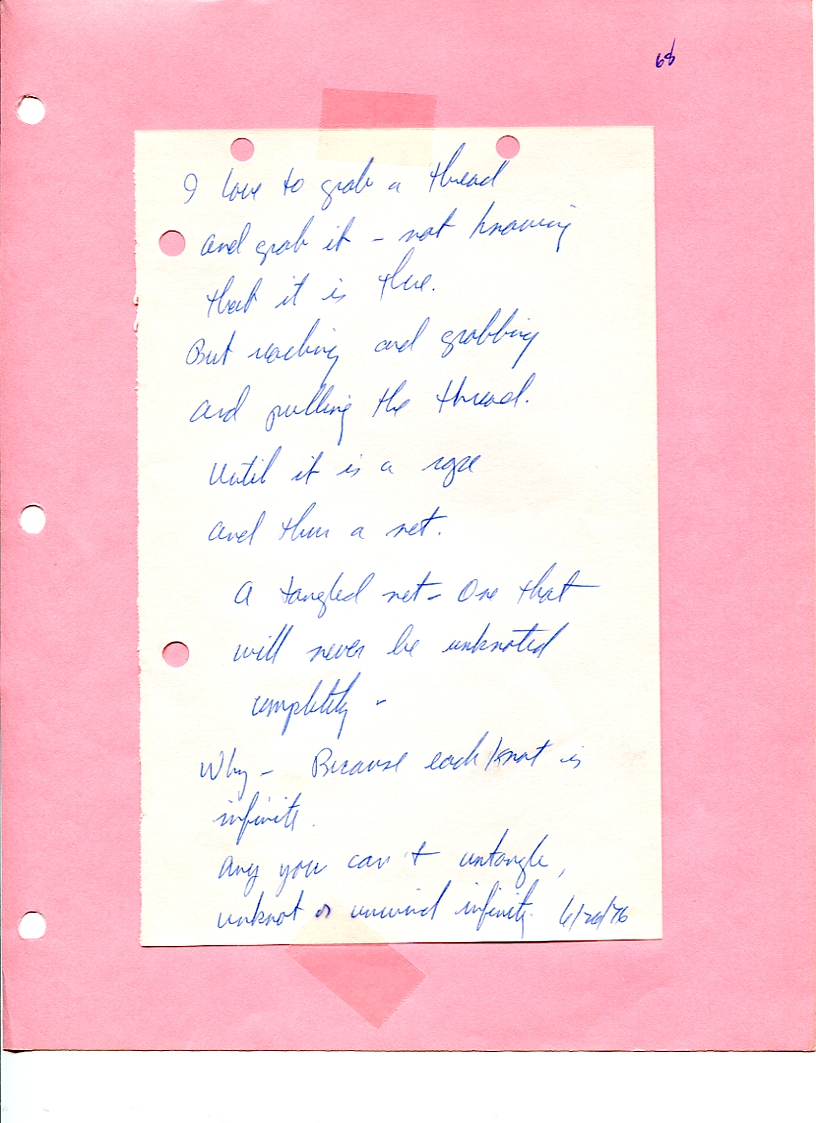 68
I love to grab a thread
and grab it - not knowing
that it is there.
But reaching and grabbing
and pulling the thread.
Until it is a rope
and then a net.
A tangled net - One that
will never be unknoted
completely -
Why - Because each knot is
infinite.
Any you can't untangle,
unknot or unwind infinity. 6/20/76